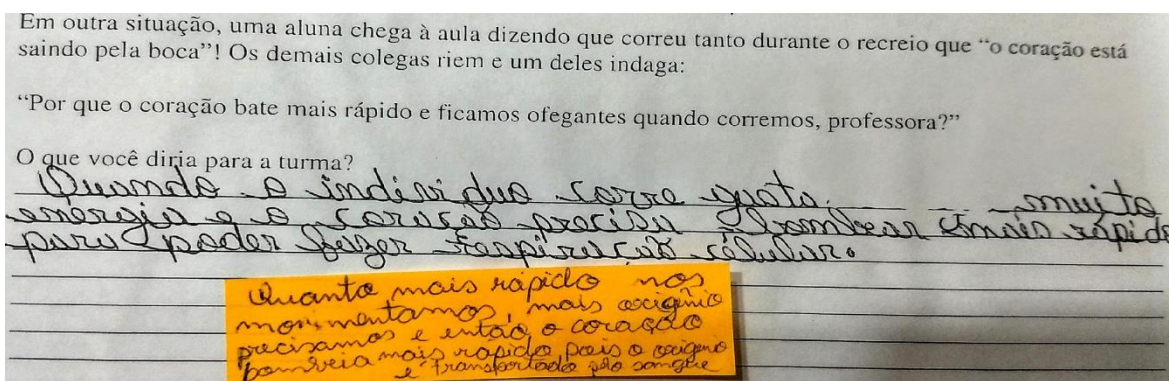 Em outra situação, uma aluna chega à aula dizendo que correu tanto durante o recreio que “o coração está
saindo pela boca”! Os demais colegas riem e um deles indaga:
“Por que o coração bate mais rápido e ficamos ofegantes quando corremos, professora?”
O que você diria para a turma?
Quando o individuo corre gasta muito
energia e o coração precisa bombear mais rápido
para poder fazer respiração célular.
Quanto mais rápido nos
movimentamos, mais oxigênio
precisamos e então o coração
bombeia mais rapido, pois o oxigeno
é transportado pelo sangue